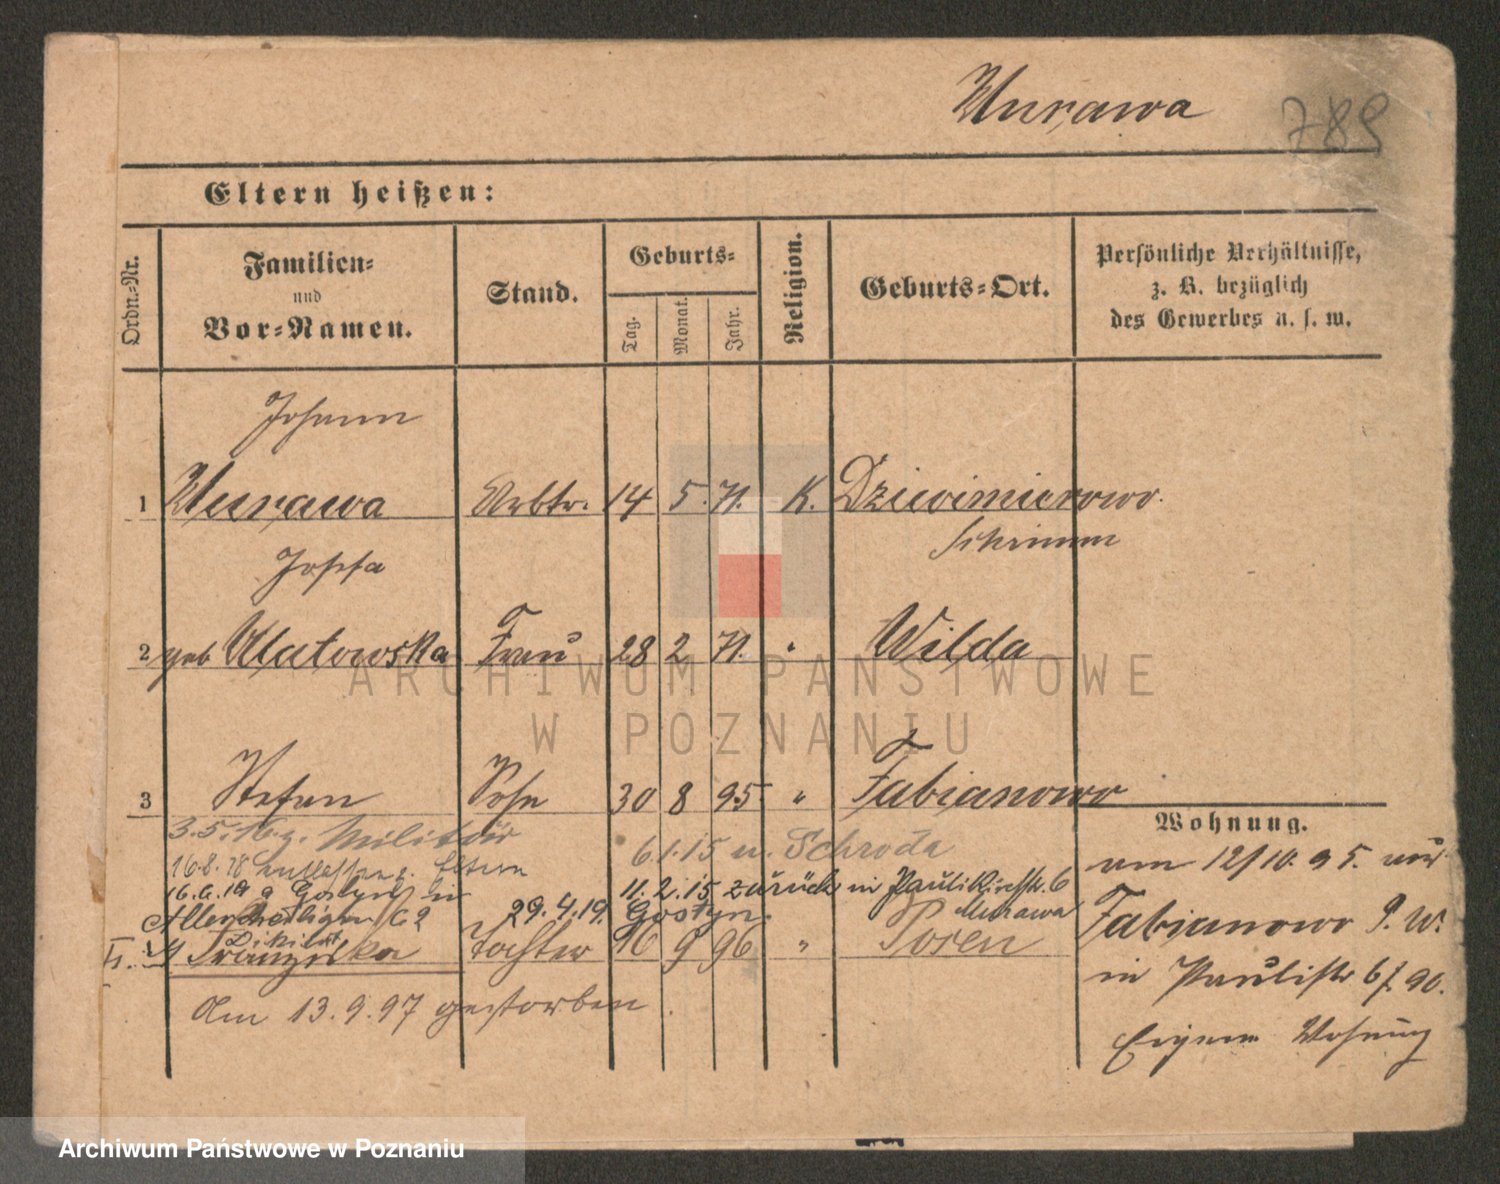 Murawa 789
Eltern heißen:
Ordn.-Nr.
Familien-
und
Vor-Namen.
Stand.
Geburts-
Tag.
Monat.
Jahr.
Religion.
Geburts-Ort.
Persönliche Verhältnisse,
z. B. bezüglich
des Gewerbes u. s. w.
Johann
1 Murawa Arbtr. 14 5. 71. K. Dziecimierowo.
Schrimm
Josefa
2 geb Ulatowska Frau 28 2 71. " Wilda
ARCHIWUM PAŃSTWOWE
W POZNANIU
3 Stefan Sohn 30 8 95 " Fabianowo
Wohnung.
3.5.16 z. Militär 6.1.15 n. Schroda
16.8.18 entlassen z. Eltern
11.2.15 zurück in Paulikirchstr. 6
16.6.19 a Gostyn in Murawa
Allerheiligen 29.4.19. Gostyn.
4 Franziska Tochter 16 9 96 " Posen
Am 13.9.97 gestorben
am 12/10. 95. aus
Fabianowo P. W.
in Paulistr 6 90.
Eigene Wohnung
Archiwum Państwowe w Poznaniu